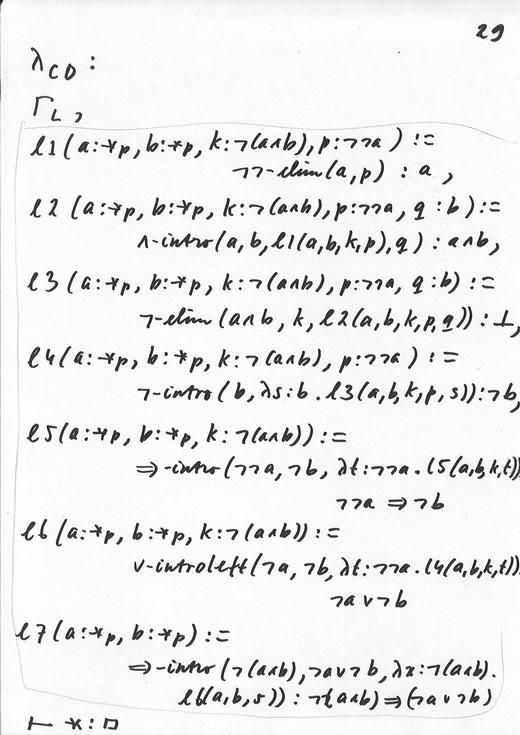 29
λCD :
ΓL ,
l1 (a:*p, b:*p, k:¬(a∧b), p:¬¬a) :=
¬¬-elim(a,p) : a ,
l2 (a:*p, b:*p, k:¬(a∧b), p:¬¬a, q:b) :=
∧-intro(a, b, l1(a,b,k,p), q) : a∧b,
l3 (a:*p, b:*p, k:¬(a∧b), p:¬¬a, q:b) :=
¬-elim (a∧b, k, l2(a,b,k,p,q)) : ⊥,
l4 (a:*p, b:*p, k:¬(a∧b), p:¬¬a) :=
¬-intro(b, λs:b . l3(a,b,k,p,s)):¬b,
l5(a:*p, b:*p, k:¬(a∧b)) :=
⇒-intro(¬¬a, ¬b, λt:¬¬a. l5(a,b,k,t))
¬¬a ⇒ ¬b
l6 (a:*p, b:*p, k:¬(a∧b)) :=
∨-introleft(¬a, ¬b, λt:¬¬a. l4(a,b,k,t))
¬a ∨ ¬b
l7(a:*p, b:*p) :=
⇒-intro (¬(a∧b), ¬a∨¬b, λz:¬(a∧b).
l6(a,b,s)) : ¬(a∧b) ⇒ (¬a∨¬b)
⊢ * : □